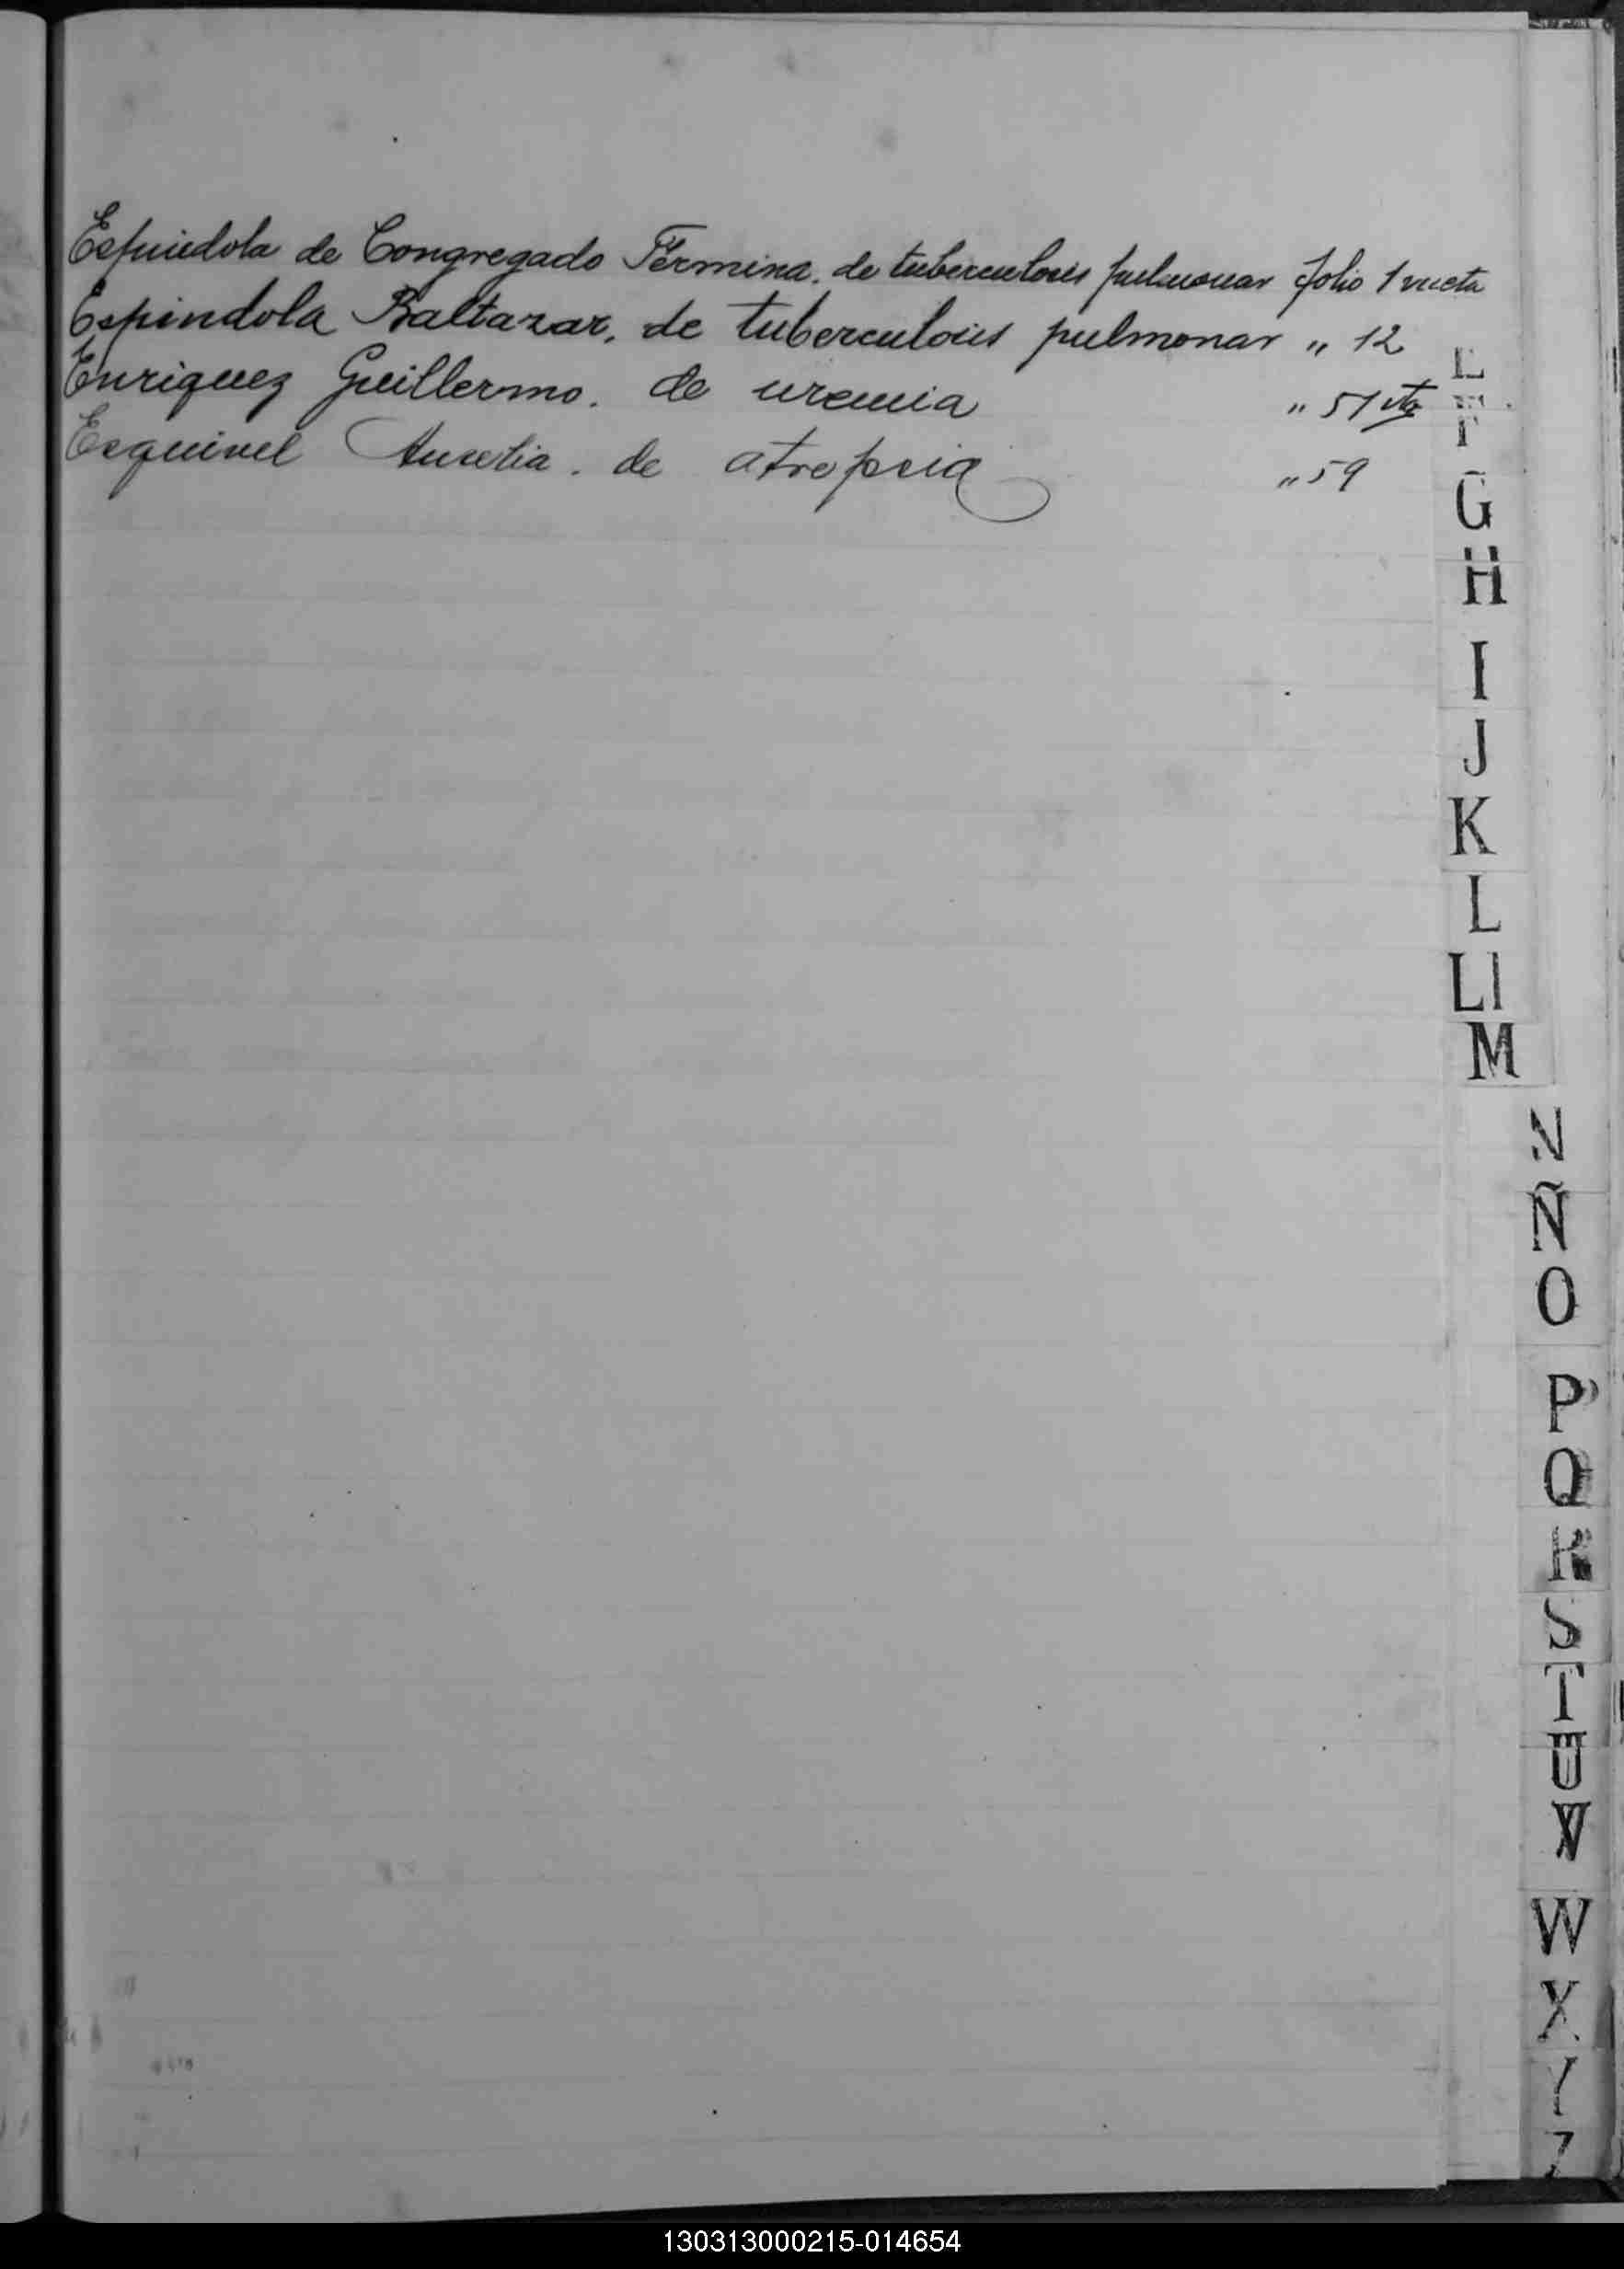 Espindola de Congregado Fermina. de tuberculosis pulmonar folio 1 vuelta
Espindola Baltazar, de tuberculosis pulmonar " 12
Enriquez Guillermo. de uremia " 51 vta
Esquivel Aurelia. de atrepsia " 59
E
F
G
H
I
J
K
L
Ll
M
N
Ñ
O
P
Q
R
S
T
U
V
W
X
Y
Z
130313000215-014654